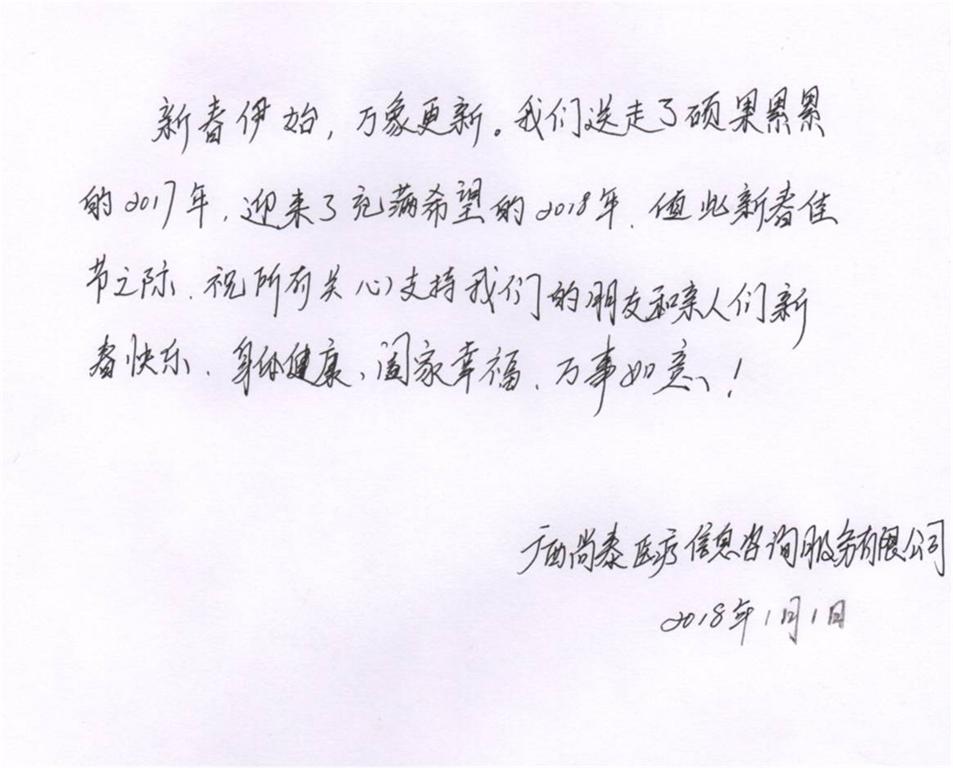 新春伊始,万象更新。我们送走了硕果累累
的2017年,迎来了充满希望的2018年.值此新春佳
节之际.祝所有关心支持我们的朋友和亲人们新
春快乐.身体健康、阖家幸福.万事如意!
广西尚泰医疗信息咨询服务有限公司
2018年1月1日